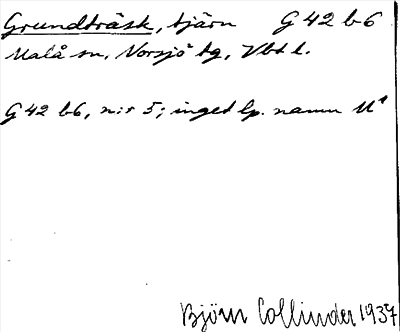 Grundträsk, tjärn G 42 b 6
Malå sn, Norsjö tg, Vbt l.
G 42 b6, n:r 5; inget lp. namn M¹
Björn Collinder 1937